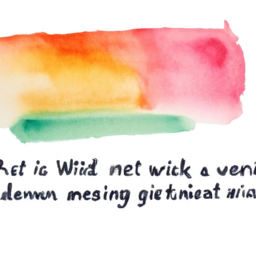 het is Wiid net wick a veni
demn mesing gietnieat